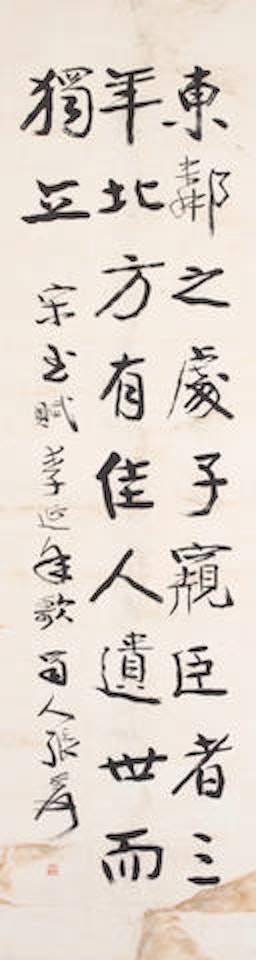 東鄰之處子窺臣者三
年北方有佳人遺世而
獨立
宋玉賦李延年歌蜀人張爰